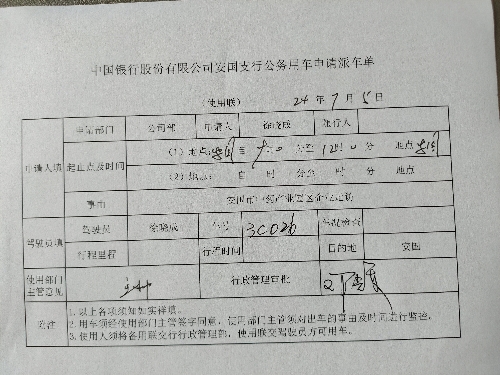 中国银行股份有限公司安国支行公务用车申请派车单
（使用联） 24 年 7 月 5 日
申请部门 公司部 申请人 徐晓成 随行人
申请人填 起止点及时间 （1）地点 分至 12时 0 分 地点
（2）地点 时 分至 时 分 地点
事由
驾驶员填 驾驶员 徐晓成 车号 3C026
行程里程 行程时间 目的地 安国
使用部门主管意见 行政管理审批
附注 1.以上各项须如实详填。
2.用车须经使用部门主管签字同意，使用部门主管须对出车的事由及时间进行监控。
3.使用人须将备用联交行政管理部，使用联交驾驶员方可用车。